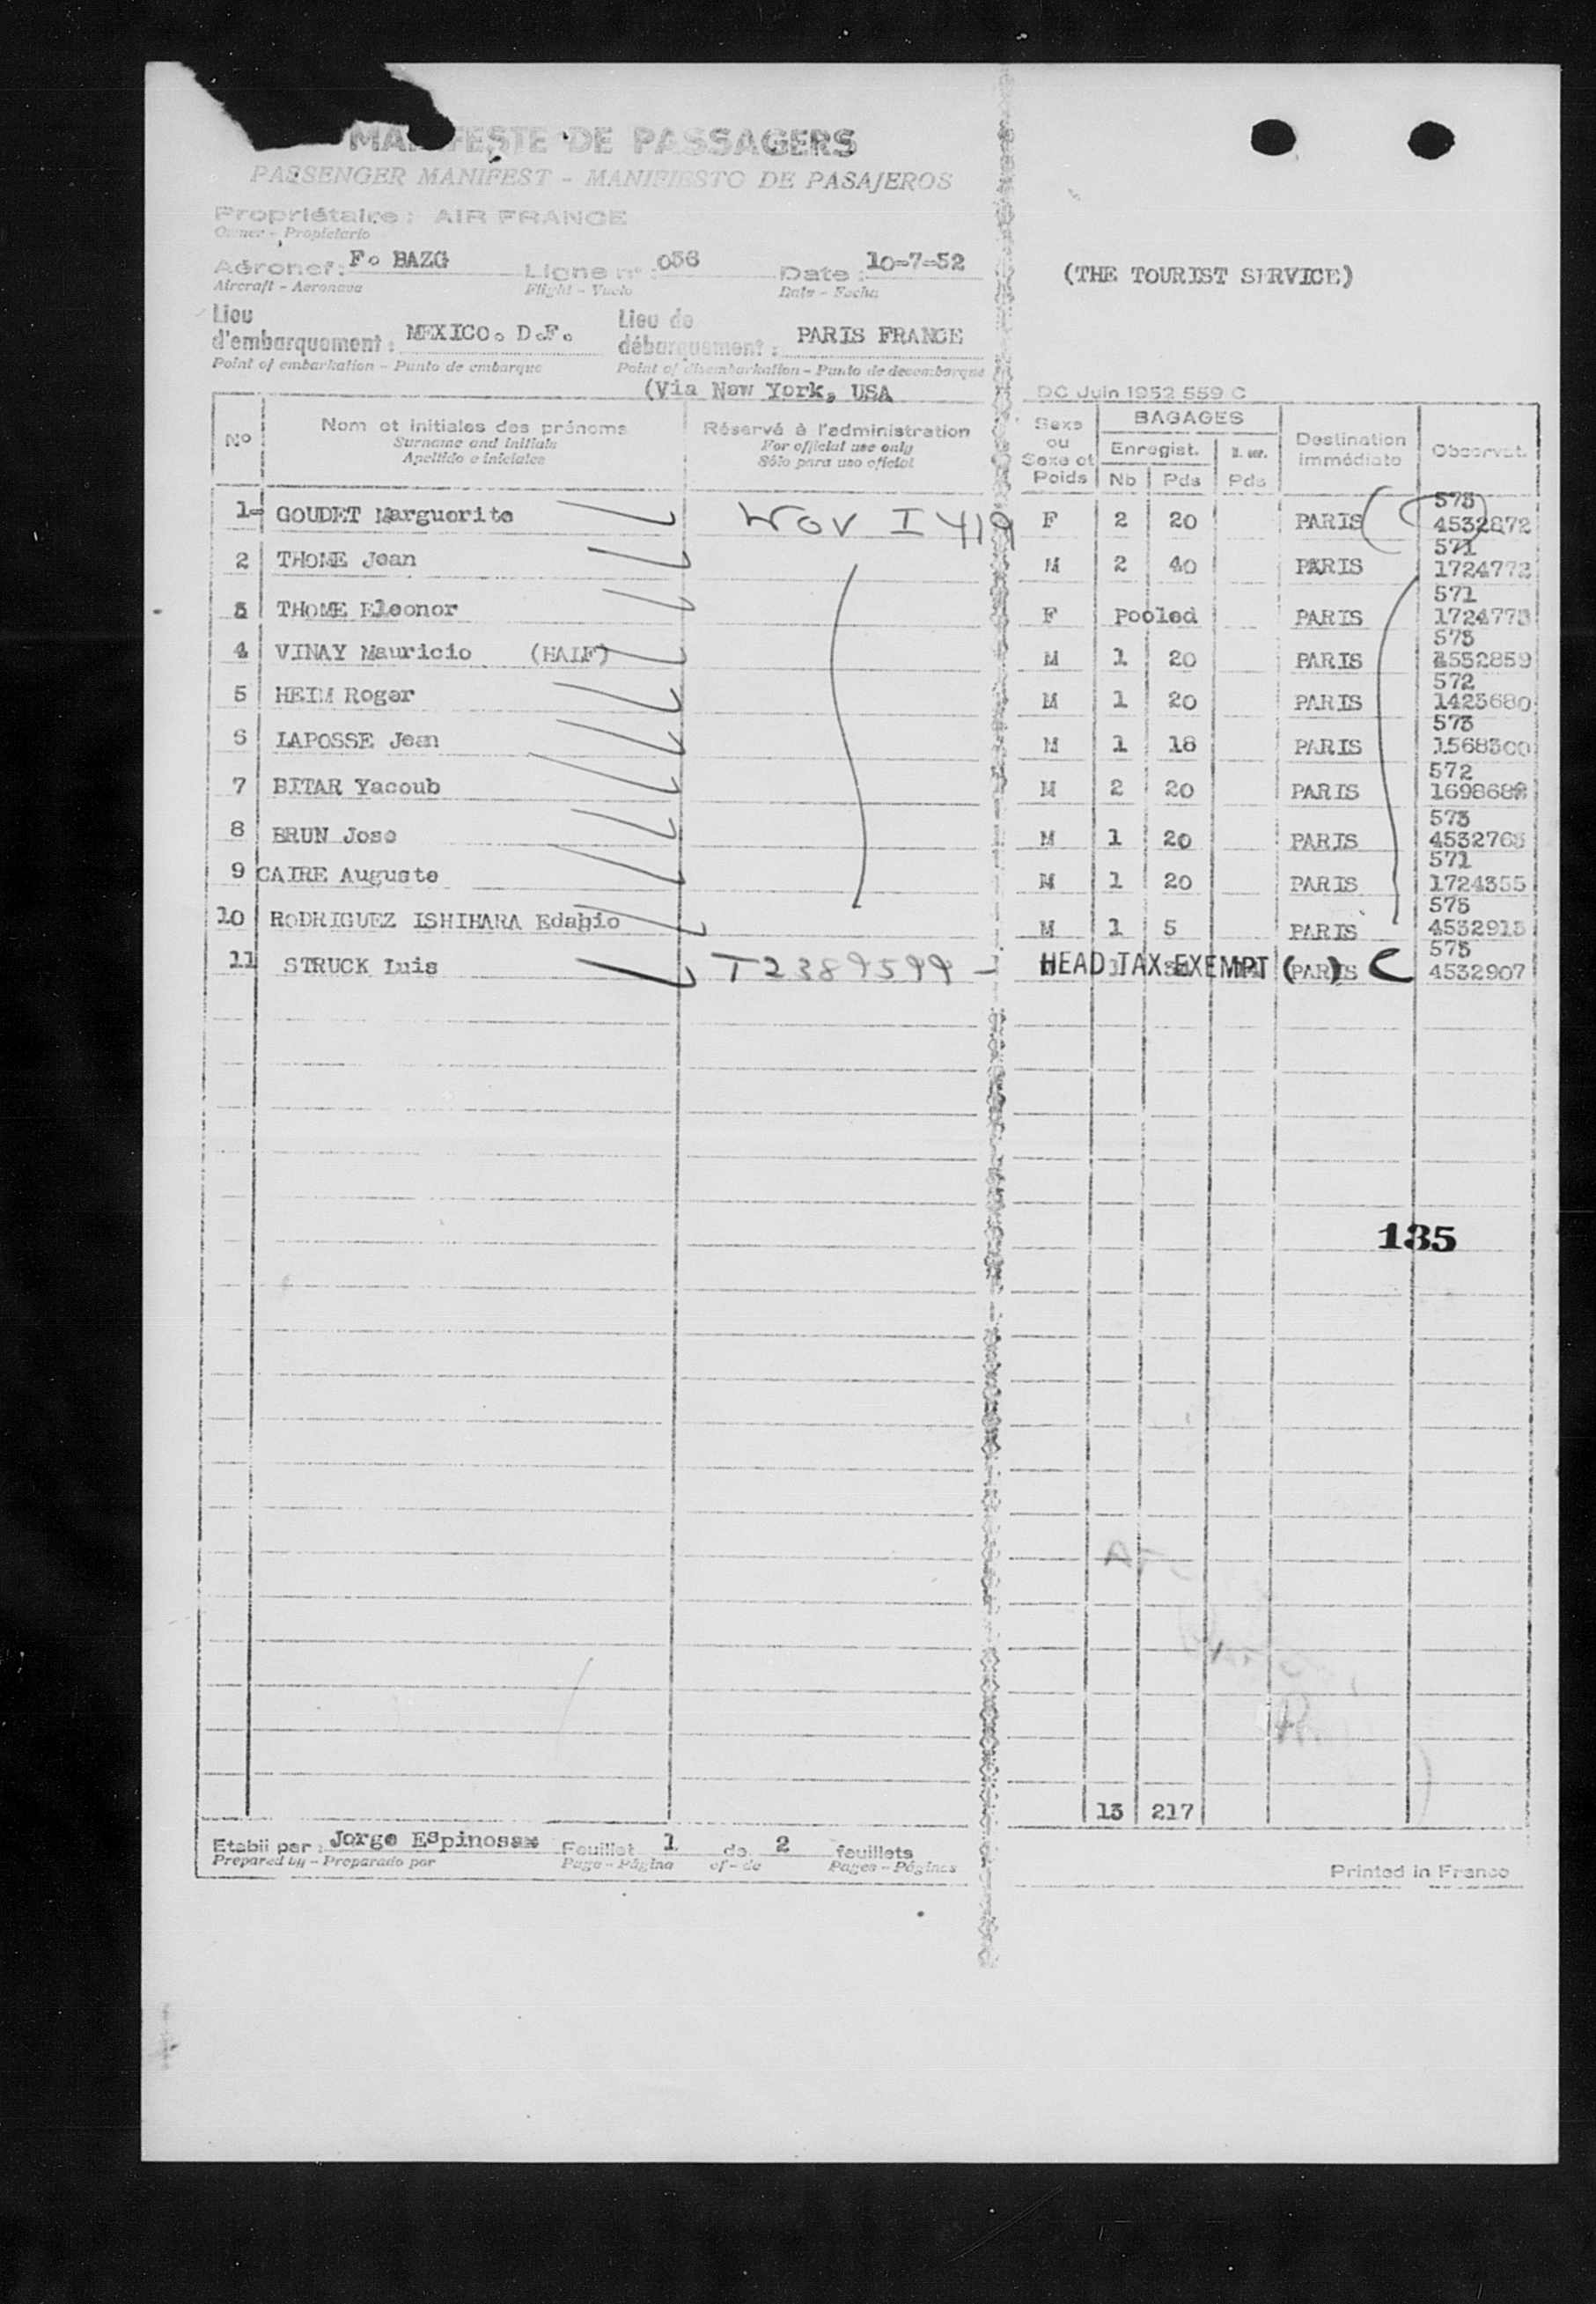 MANIFESTE DE PASSAGERS
PASSENGER MANIFEST - MANIFIESTO DE PASAJEROS
Propriétaire : AIR FRANCE
Owner - Propietario
Aéronef : F. BAZG Ligne n° : 056 Date : 10-7-52
Aircraft - Aeronave Flight - Vuelo Date - Fecha
(THE TOURIST SERVICE)
Lieu d'embarquement : MEXICO. D.F. Lieu de débarquement : PARIS FRANCE
Point of embarkation - Punto de embarque Point of disembarkation - Punto de desembarque
(Via New York, USA
DC Juin 1952 559 C
N° Nom et initiales des prénoms Réservé à l'administration Sexe ou Sexe et Poids BAGAGES Destination immédiate Observat.
Surname and initials For official use only Enregist. N. enr.
Apellido e iniciales Sólo para uso oficial Nb Pds Pds
1- GOUDET Marguerite WOV I 419 F 2 20 PARIS 573 4532872
2 THOME Jean M 2 40 PARIS 571 1724772
3 THOME Eleonor F Pooled PARIS 571 1724773
4 VINAY Mauricio (HALF) M 1 20 PARIS 573 4532859
5 HEIM Roger M 1 20 PARIS 572 1423680
6 LAPOSSE Jean M 1 18 PARIS 573 1568300
7 BITAR Yacoub M 2 20 PARIS 572 169868
8 BRUN Jose M 1 20 PARIS 573 4532763
9 CAIRE Auguste M 1 20 PARIS 571 1724355
10 RODRIGUEZ ISHIHARA Edabio M 1 5 PARIS 573 4532913
11 STRUCK Luis T2389599 - HEAD TAX EXEMPT ( ) PARIS C 573 4532907
135
13 217
Etabli par : Jorge Espinosa Feuillet 1 de 2 feuillets
Prepared by - Preparado por Page - Página of - de Pages - Páginas
Printed in France